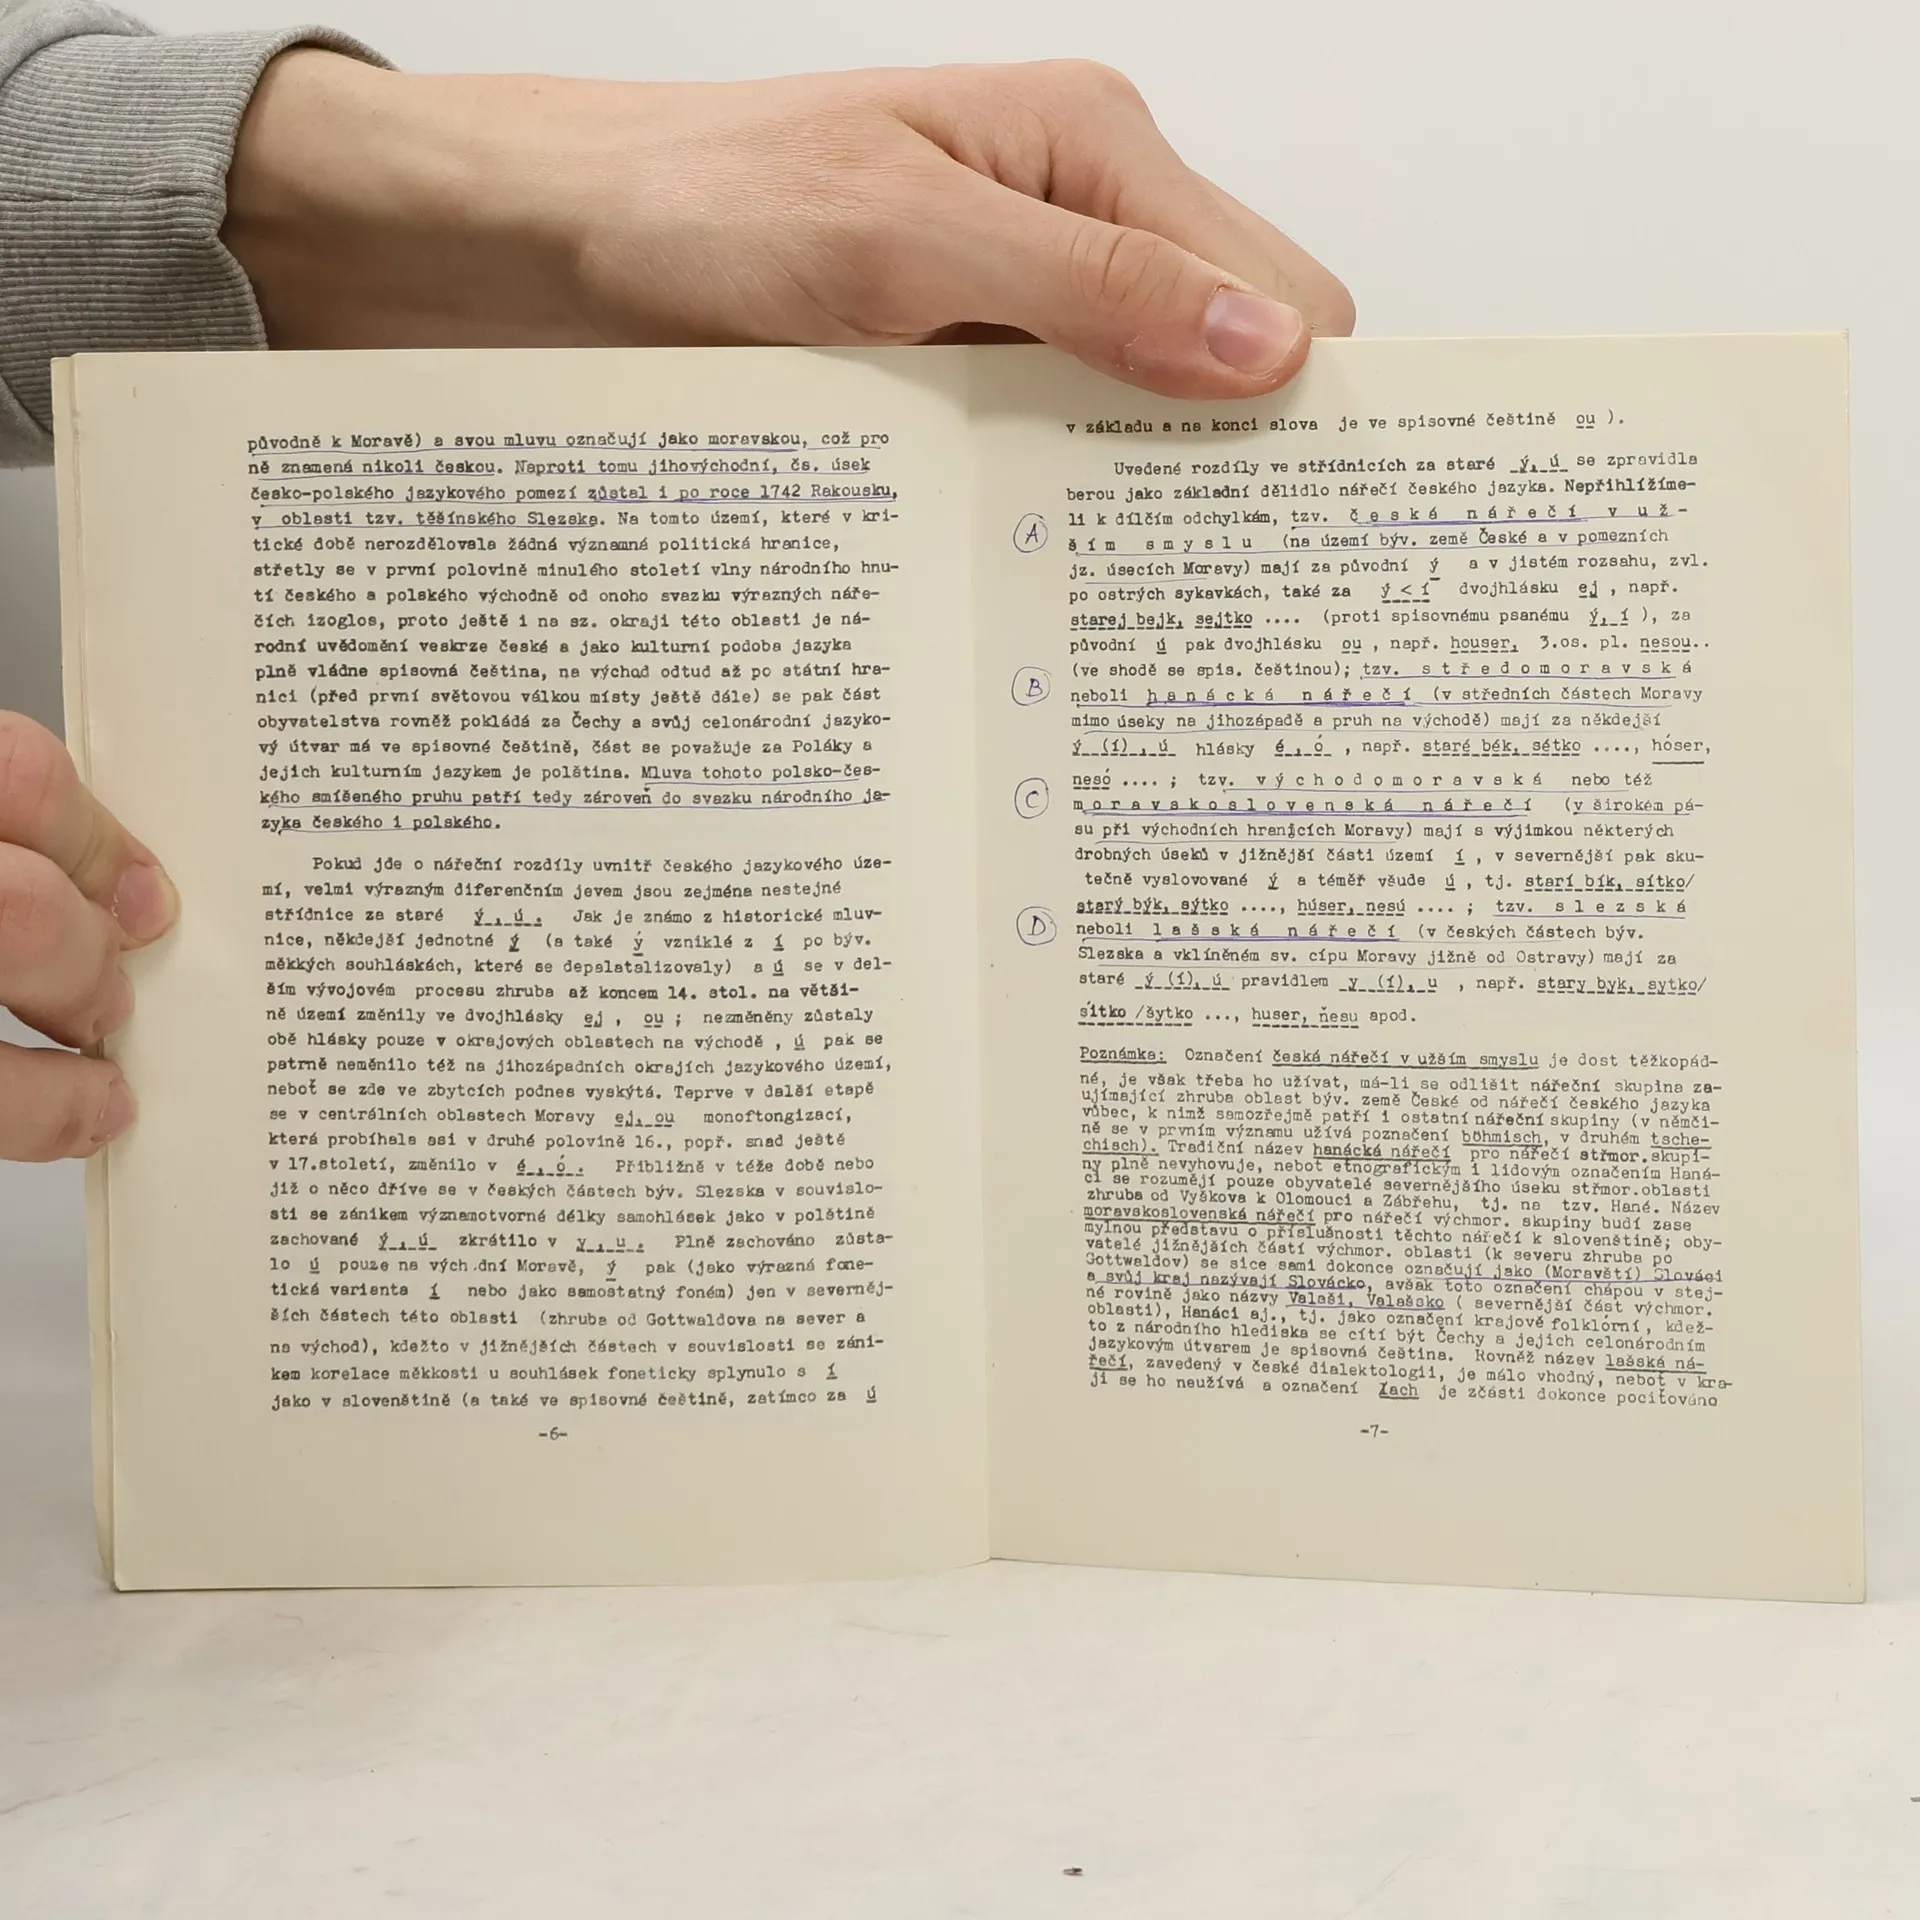 původně k Moravě) a svou mluvu označují jako moravskou, což pro
ně znamená nikoli českou. Naproti tomu jihovýchodní, čs. úsek
česko-polského jazykového pomezí zůstal i po roce 1742 Rakousku,
v oblasti tzv. těšínského Slezska. Na tomto území, které v kri-
tické době nerozdělovala žádná významná politická hranice,
střetly se v první polovině minulého století vlny národního hnu-
tí českého a polského východně od onoho svazku výrazných náře-
čích izoglos, proto ještě i na sz. okraji této oblasti je ná-
rodní uvědomění veskrze české a jako kulturní podoba jazyka
plně vládne spisovná čeština, na východ odtud až po státní hra-
nici (před první světovou válkou místy ještě dále) se pak část
obyvatelstva rovněž pokládá za Čechy a svůj celonárodní jazyko-
vý útvar má ve spisovné češtině, část se považuje za Poláky a
jejich kulturním jazykem je polština. Mluva tohoto polsko-čes-
kého smíšeného pruhu patří tedy zároveň do svazku národního ja-
zyka českého i polského.
Pokud jde o nářeční rozdíly uvnitř českého jazykového úze-
mí, velmi výrazným diferenčním jevem jsou zejména nestejné
střídnice za staré ý, ú. Jak je známo z historické mluv-
nice, někdejší jednotné ý (a také ý vzniklé z í po býv.
měkkých souhláskách, které se depalatalizovaly) a ú se v del-
ším vývojovém procesu zhruba až koncem 14. stol. na větši-
ně území změnily ve dvojhlásky ej, ou; nezměněny zůstaly
obě hlásky pouze v okrajových oblastech na východě, ú pak se
patrně neměnilo též na jihozápadních okrajích jazykového území,
neboť se zde ve zbytcích podnes vyskýtá. Teprve v další etapě
se v centrálních oblastech Moravy ej, ou monoftongizací,
která probíhala asi v druhé polovině 16., popř. snad ještě
v 17.století, změnilo v é, ó. Přibližně v téže době nebo
již o něco dříve se v českých částech býv. Slezska v souvislo-
sti se zánikem významotvorné délky samohlásek jako v polštině
zachované ý, ú zkrátilo v y, u. Plně zachováno zůsta-
lo ú pouze na vých.dní Moravě, ý pak (jako výrazná fone-
tická varianta í nebo jako samostatný foném) jen v severněj-
ších částech této oblasti (zhruba od Gottwaldova na sever a
na východ), kdežto v jižnějších částech v souvislosti se záni-
kem korelace měkkosti u souhlásek foneticky splynulo s í
jako v slovenštině (a také ve spisovné češtině, zatímco za ú
-6-
v základu a na konci slova je ve spisovné češtině ou ).
Uvedené rozdíly ve střídnicích za staré ý, ú se zpravidla
berou jako základní dělidlo nářečí českého jazyka. Nepřihlížíme-
li k dílčím odchylkám, tzv. č e s k á n á ř e č í v u ž -
A
š í m s m y s l u (na území býv. země České a v pomezních
jz. úsecích Moravy) mají za původní ý a v jistém rozsahu, zvl.
po ostrých sykavkách, také za ý < í dvojhlásku ej, např.
starej bejk, sejtko .... (proti spisovnému psanému ý, í ), za
původní ú pak dvojhlásku ou, např. houser, 3.os. pl. nesou..
(ve shodě se spis. češtinou); tzv. s t ř e d o m o r a v s k á
B
neboli h a n á c k á n á ř e č í (v středních částech Moravy
mimo úseky na jihozápadě a pruh na východě) mají za někdejší
ý (í), ú hlásky é, ó, např. staré bék, sétko ...., hóser,
nesó .... ; tzv. v ý c h o d o m o r a v s k á nebo též
C
m o r a v s k o s l o v e n s k á n á ř e č í (v širokém pá-
su při východních hranjcích Moravy) mají s výjimkou některých
drobných úseků v jižnější části území í, v severnější pak sku-
tečně vyslovované ý a téměř všude ú, tj. starí bík, sítko/
starý býk, sýtko ...., húser, nesú .... ; tzv. s l e z s k á
D
neboli l a š s k á n á ř e č í (v českých částech býv.
Slezska a vklíněném sv. cípu Moravy jižně od Ostravy) mají za
staré ý (í), ú pravidlem y (i), u, např. stary byk, sytko/
śitko /šytko ..., huser, ňesu apod.
Poznámka: Označení česká nářečí v užším smyslu je dost těžkopád-
né, je však třeba ho užívat, má-li se odlišit nářeční skupina za-
ujímající zhruba oblast býv. země České od nářečí českého jazyka
vůbec, k nimž samozřejmě patří i ostatní nářeční skupiny (v němči-
ně se v prvním významu užívá poznačení böhmisch, v druhém tsche-
chisch). Tradiční název hanácká nářečí pro nářečí střmor.skupi-
ny plně nevyhovuje, neboť etnografickým i lidovým označením Haná-
ci se rozumějí pouze obyvatelé severnějšího úseku střmor.oblasti
zhruba od Vyškova k Olomouci a Zábřehu, tj. na tzv. Hané. Název
moravskoslovenská nářečí pro nářečí výchmor. skupiny budí zase
mylnou představu o příslušnosti těchto nářečí k slovenštině; oby-
vatelé jižnějších částí výchmor. oblasti (k severu zhruba po
Gottwaldov) se sice sami dokonce označují jako (Moravští) Slováci
a svůj kraj nazývají Slovácko, avšak toto označení chápou v stej-
né rovině jako názvy Valaši, Valašsko ( severnější část výchmor.
oblasti), Hanáci aj., tj. jako označení krajově folklórní, kdež-
to z národního hlediska se cítí být Čechy a jejich celonárodním
jazykovým útvarem je spisovná čeština. Rovněž název lašská ná-
řečí, zavedený v české dialektologii, je málo vhodný, neboť v kra-
ji se ho neužívá a označení Lach je zčásti dokonce pociťováno
-7-